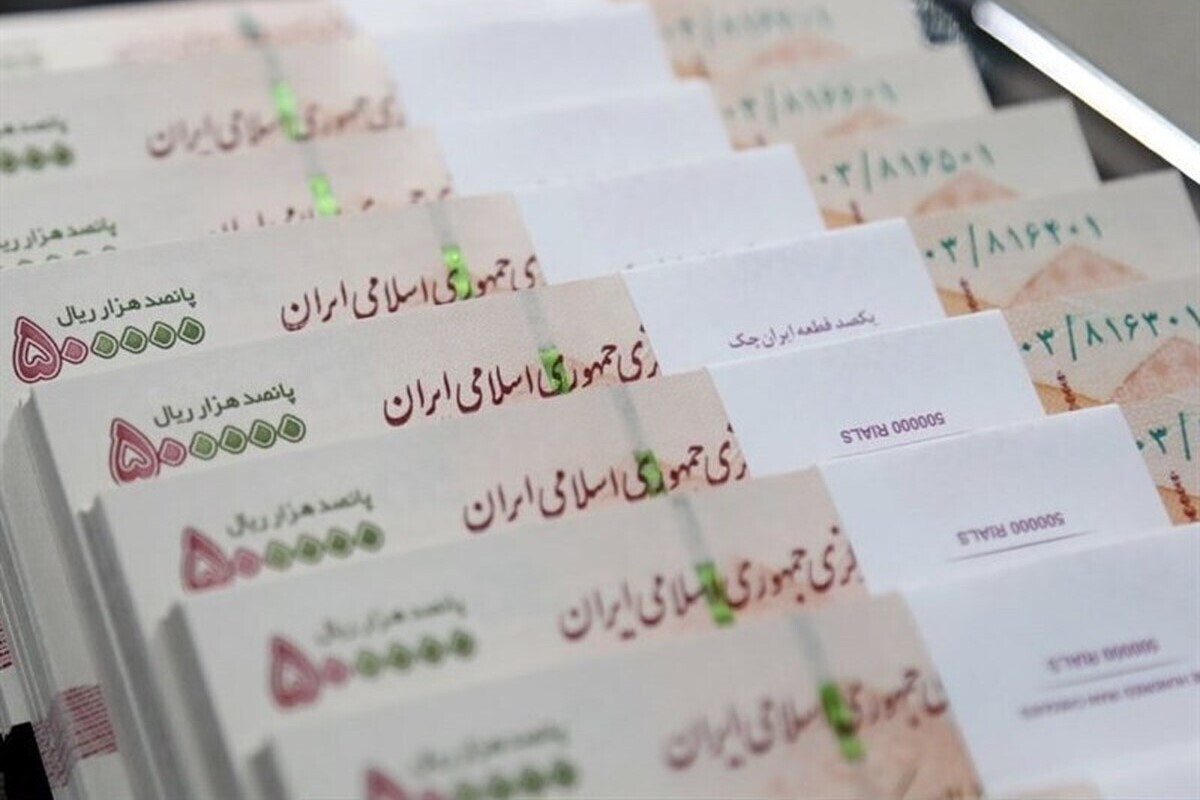 ۸۱۶۶۰۱
جمهوری اسلامی ایران
پانصد هزار ریال
۰۳/۸۱۶۵۰۱
پانصد هزار ریال
۰۳/۸۱۶۴۰۱
جمهوری اسلامی ایران
پانصد هزار ریال
۵۰۰۰۰۰
یکصد قطعه ایران چک
۰۳/۸۱۶۳۰۱
جمهوری اسلامی ایران
پانصد هزار ریال
۵۰۰۰۰۰
500000 RIALS
۰۳/
جمهوری اسلامی ایران
پانصد هزار ریال
۵۰۰۰۰۰
500000 RIALS
جمهوری اسلامی ایران
پانصد هزار ریال
۵۰۰۰۰۰
500000 RIALS
جمهوری اسلامی ایران
پانصد هزار ریال